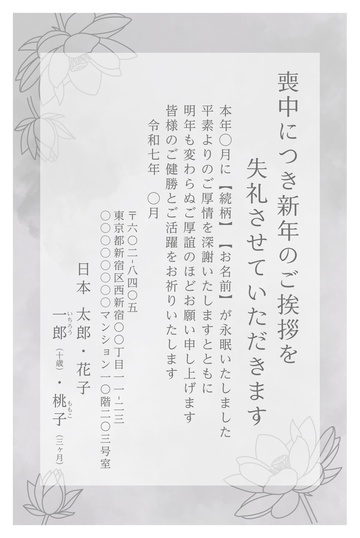 喪中につき新年のご挨拶を
失礼させていただきます
本年〇月に【続柄】【お名前】が永眠いたしました
平素よりのご厚情を深謝いたしますとともに
明年も変わらぬご厚誼のほどお願い申し上げます
皆様のご健勝とご活躍をお祈りいたします
令和七年 〇月
〒六〇二-八四〇五
東京都新宿区西新宿〇〇丁目一一-二三
〇〇〇〇〇〇〇マンション一〇階二〇三号室
日本 太郎・花子
一郎(いちろう)(十歳)・桃子(ももこ)(三ヶ月)